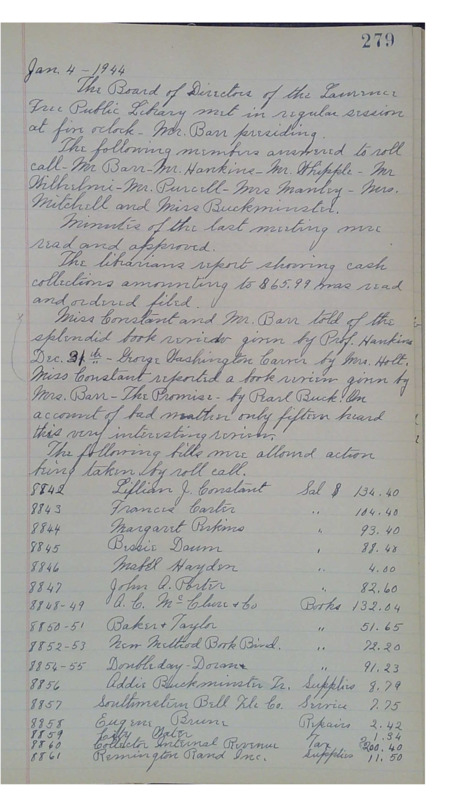 279
Jan. 4 - 1944
The Board of Directors of the Lawrence
Free Public Library met in regular session
at five oclock - Mr. Barr presiding.
The following members answered to roll
call - Mr Barr - Mr. Hankins - Mr. Whipple - Mr
Wilhelmi - Mr. Purcell - Mrs Manley - Mrs.
Mitchell and Miss Buckminster.
Minutes of the last meeting were
read and approved.
The librarians report showing cash
collections amounting to $65.99 was read
and ordered filed.
Miss Constant and Mr. Barr told of the
splendid book review given by Prof. Hankins
Dec. 31th - George Washington Carver by Mrs. Holt.
Miss Constant reported a book review given by
Mrs. Barr - The Promise - by Pearl Buck. On
account of bad weather only fifteen heard
this very interesting review.
The following bills were allowed action
being taken by roll call.
8842 Lillian J. Constant Sal $ 134.40
8843 Frances Carter " 104.40
8844 Margaret Perkins " 93.40
8845 Bessie Daum " 88.40
8846 Mabel Hayden " 4.00
8847 John A. Porter " 82.60
8848-49 A. C. McClure & Co Books 132.04
8850-51 Baker & Taylor " 51.65
8852-53 New Method Book Bind. " 72.20
8854-55 Doubleday-Doran " 91.23
8856 Addie Buckminster Tr. Supplies 8.79
8857 Southwestern Bell Tele Co. Service 7.75
8858 Eugene Brune Repairs 2.42
8859 City Water " 1.34
8860 Collector Internal Revenue Tax 200.40
8861 Remington Rand Inc. Supplies 11.50